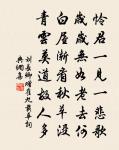 怜君一见一悲歌
岁岁无如老去何
白屋渐看秋草没
青云莫道故人多
刘长卿赠崔九载华词
典澜书